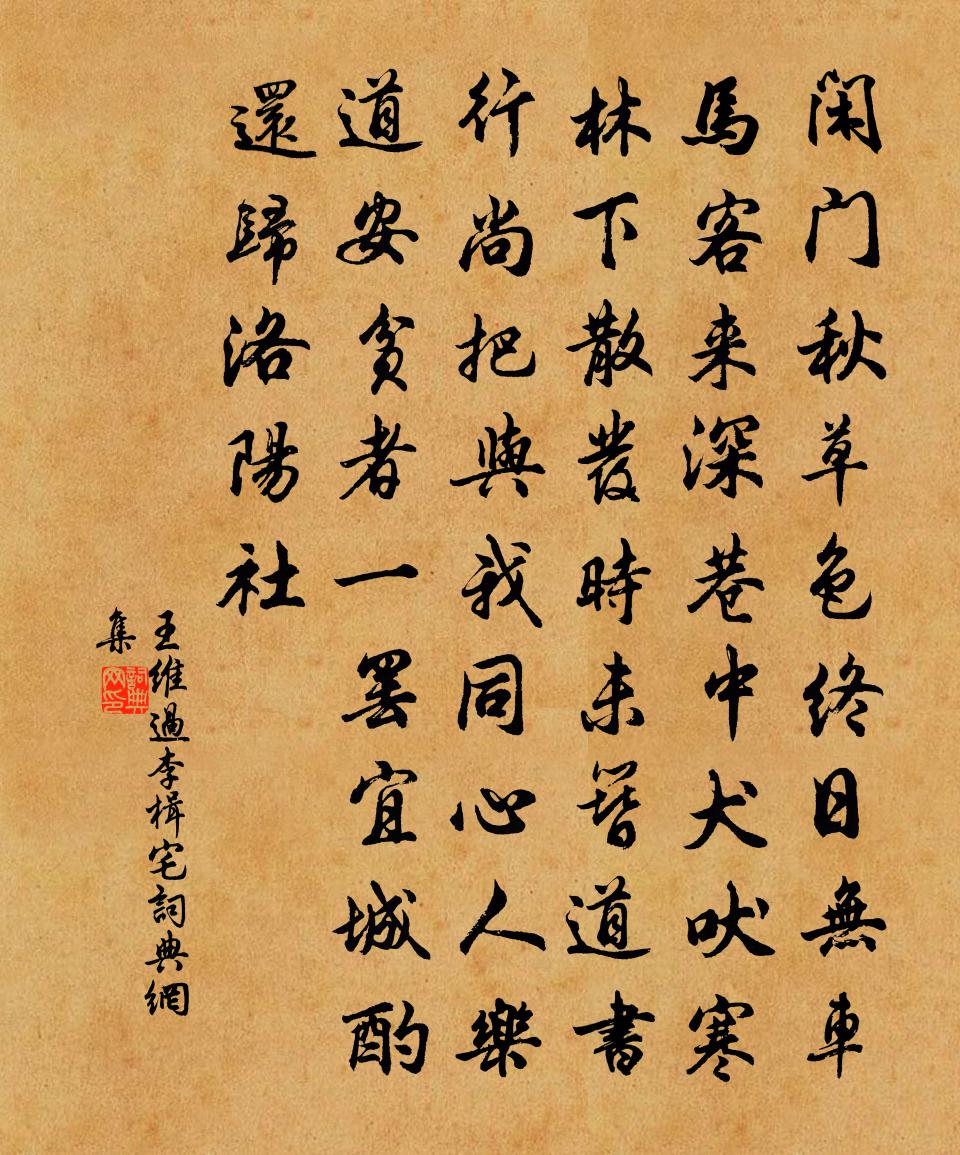 閑门秋草色終日無車
馬客来深巷中犬吠寒
林下散發時未簪道書
行尚把與我同心人樂
道安貧者一罢宜城酌
還歸洛陽社
王維過李楫宅詞典網
集
詞典
网印